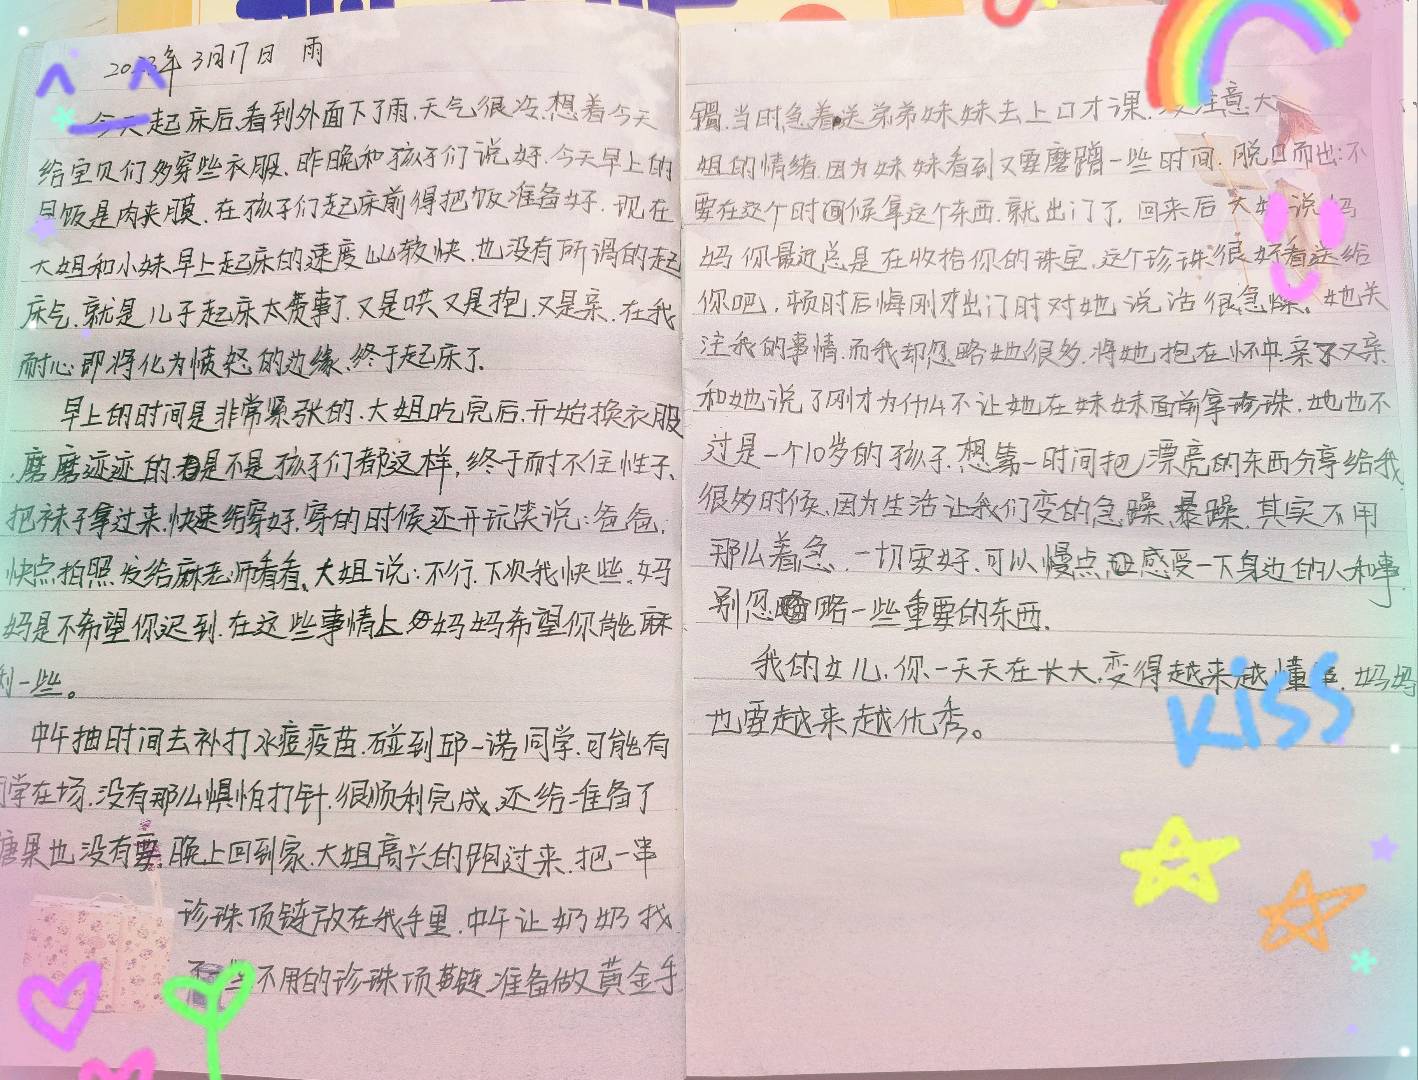 2023年3月17日 雨
今天起床后,看到外面下了雨,天气很冷,想着今天
给宝贝们多穿些衣服,昨晚和孩子们说好,今天早上的
早饭是肉夹膜,在孩子们起床前得把饭准备好,现在
大姐和小妹早上起床的速度比较快,也没有所谓的起
床气,就是儿子起床太费事了,又是哄又是抱,又是亲,在我
耐心即将化为愤怒的边缘,终于起床了。
早上的时间是非常紧张的,大姐吃完后,开始换衣服
,磨磨迹迹的,是不是孩子们都这样,终于耐不住性子,
把袜子拿过来,快速给穿好,穿的时候还开玩笑说:爸爸,
快点拍照发给麻老师看看,大姐说:不行,下次我快些。妈
妈是不希望你迟到,在这些事情上妈妈希望你能麻
利一些。
中午抽时间去补打水痘疫苗,碰到邱一诺同学,可能有
同学在场,没有那么惧怕打针,很顺利完成,还给准备了
糖果也没有要,晚上回到家,大姐高兴的跑过来,把一串
珍珠项链放在我手里,中午让奶奶找
不用的珍珠项链,准备做黄金手
镯,当时急着送弟弟妹妹去上口才课,没注意大
姐的情绪,因为妹妹看到又要磨蹭一些时间,脱口而出:不
要在这个时间候拿这个东西,就出门了,回来后大姐说妈
妈你最近总是在收拾你的珠宝,这个珍珠很好看送给
你吧,顿时后悔刚才出门时对她说话很急燥,她关
注我的事情,而我却忽略她很多,将她抱在怀中,亲了又亲
和她说了刚才为什么不让她在妹妹面前拿珍珠,她也不
过是一个10岁的孩子,想第一时间把漂亮的东西分享给我
很多时候,因为生活让我们变的急躁,暴躁,其实不用
那么着急,一切安好,可以慢点,感受一下身边的人和事,
别忽略一些重要的东西。
我的女儿,你一天天在长大,变得越来越懂事,妈妈
也要越来越优秀。
Kiss